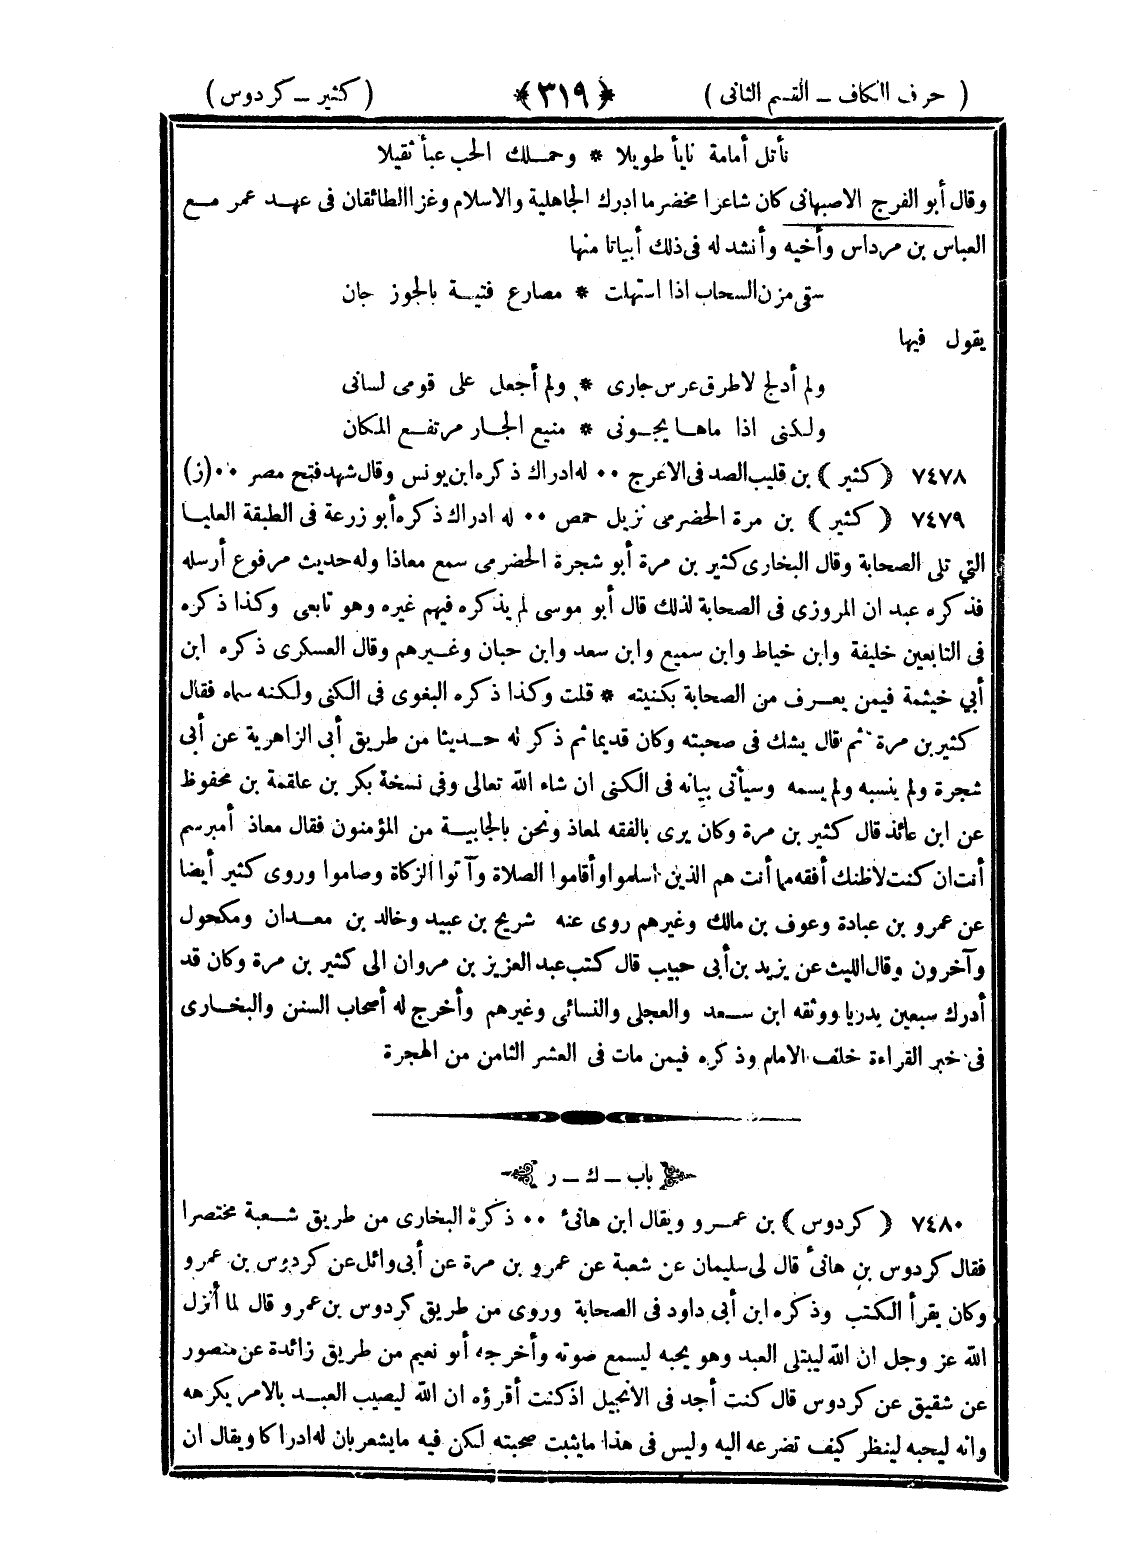 ( حرف الكاف ـ القسم الثانى ) ﴿ ٣١٩ ﴾ ( كثير ـ كردوس )
نأتل أمامة نايأ طويلا * وحملك الحب عبأ ثقيلا
وقال أبو الفرج الاصبهانى كان شاعرا مخضرما ادرك الجاهلية والاسلام وغزا الطائقان فى عهد عمر مع
العباس بن مرداس وأخيه وأنشد له فى ذلك أبياتا منها
سقى مزن السحاب اذا استهلت * مصارع فتية بالجوز جان
يقول فيها
ولم أدلج لاطرق عرس جارى * ولم أجعل على قومى لسانى
ولكنى اذا ماهايجونى * منيع الجار مرتفع المكان
٧٤٧٨ ( كثير ) بن قليب الصدفى الاعرج ٠٠ له ادراك ذكره ابن يونس وقال شهد فتح مصر ٠٠ (ز)
٧٤٧٩ ( كثير ) بن مرة الحضرمى نزيل حمص ٠٠ له ادراك ذكره أبو زرعة فى الطبقة العليا
التي تلى الصحابة وقال البخارى كثير بن مرة أبو شجرة الحضرمى سمع معاذا وله حديث مرفوع أرسله
فذكره عبدان المروزى فى الصحابة لذلك قال أبو موسى لم يذكره فيهم غيره وهو تابعى وكذا ذكره
فى التابعين خليفة وابن خياط وابن سميع وابن سعد وابن حبان وغيرهم وقال العسكرى ذكره ابن
أبي خيثمة فيمن يعرف من الصحابة بكنيته * قلت وكذا ذكره البغوى فى الكنى ولكنه سماه فقال
كثير بن مرة ثم قال يشك فى صحبته وكان قديما ثم ذكر له حديثا من طريق أبى الزاهرية عن أبى
شجرة ولم ينسبه ولم يسمه وسيأتى بيانه فى الكنى ان شاء الله تعالى وفى نسخة بكر بن علقمة بن محفوظ
عن ابن عائذ قال كثير بن مرة وكان يرى بالفقه لمعاذ ونحن بالجابية من المؤمنون فقال معاذ أمبرسم
أنت ان كنت لاظنك أفقه مما أنت هم الذين أسلموا وأقاموا الصلاة وآتوا الزكاة وصاموا وروى كثير أيضا
عن عمرو بن عبادة وعوف بن مالك وغيرهم روى عنه شريح بن عبيد وخالد بن معدان ومكحول
وآخرون وقال الليث عن يزيد بن أبى حبيب قال كتب عبد العزيز بن مروان الى كثير بن مرة وكان قد
أدرك سبعين بدريا ووثقه ابن سعد والعجلى والنسائى وغيرهم وأخرج له أصحاب السنن والبخارى
فى خبر القراءة خلف الامام وذكره فيمن مات فى العشر الثامن من الهجرة
باب ـ ك ـ ر
٧٤٨٠ ( كردوس ) بن عمرو ويقال ابن هانئ ٠٠ ذكره البخارى من طريق شعبة مختصرا
فقال كردوس بن هانئ قال لى سليمان عن شعبة عن عمرو بن مرة عن أبى وائل عن كردوس بن عمرو
وكان يقرأ الكتب وذكره ابن أبى داود فى الصحابة وروى من طريق كردوس بن عمرو قال لما أنزل
الله عز وجل ان الله ليبتلى العبد وهو يحبه ليسمع صوته وأخرجه أبو نعيم من طريق زائدة عن منصور
عن شقيق عن كردوس قال كنت أجد فى الانجيل اذ كنت أقرؤه ان الله ليصيب العبد بالامر يكرهه
وانه ليحبه لينظر كيف تضرعه اليه وليس فى هذا ما يثبت صحبته لكن فيه ما يشعر بان له ادراكا ويقال ان